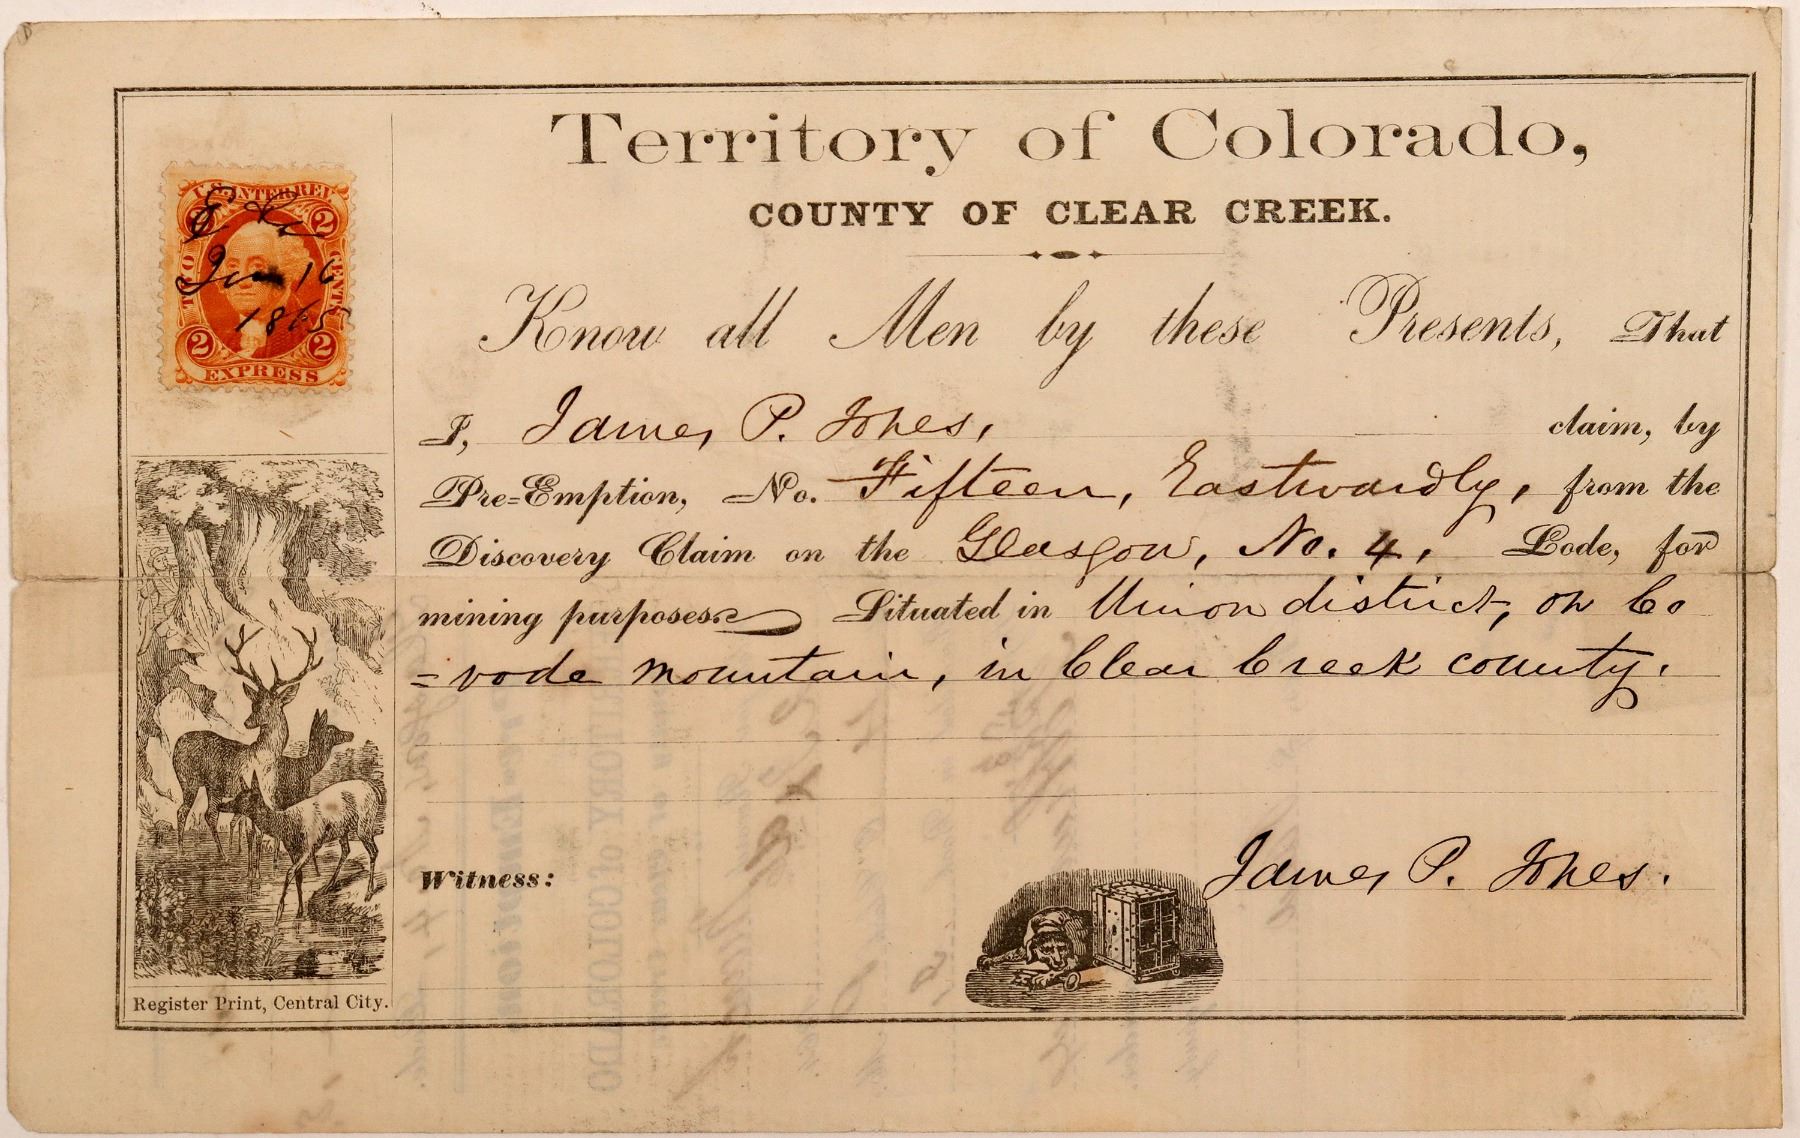 Territory of Colorado,
COUNTY OF CLEAR CREEK.
Know all Men by these Presents, That
I, James P. Jones, claim, by
Pre=Emption, No. Fifteen, Eastwardly, from the
Discovery Claim on the Glasgow, No. 4, Lode, for
mining purposes. Situated in Union district, on Co
=vode mountain, in Clear Creek county.
Witness:
James P. Jones.
U.S. INTER. REV.
2 2
TWO CENTS
2 2
EXPRESS
Jan 16
1865
Register Print, Central City.